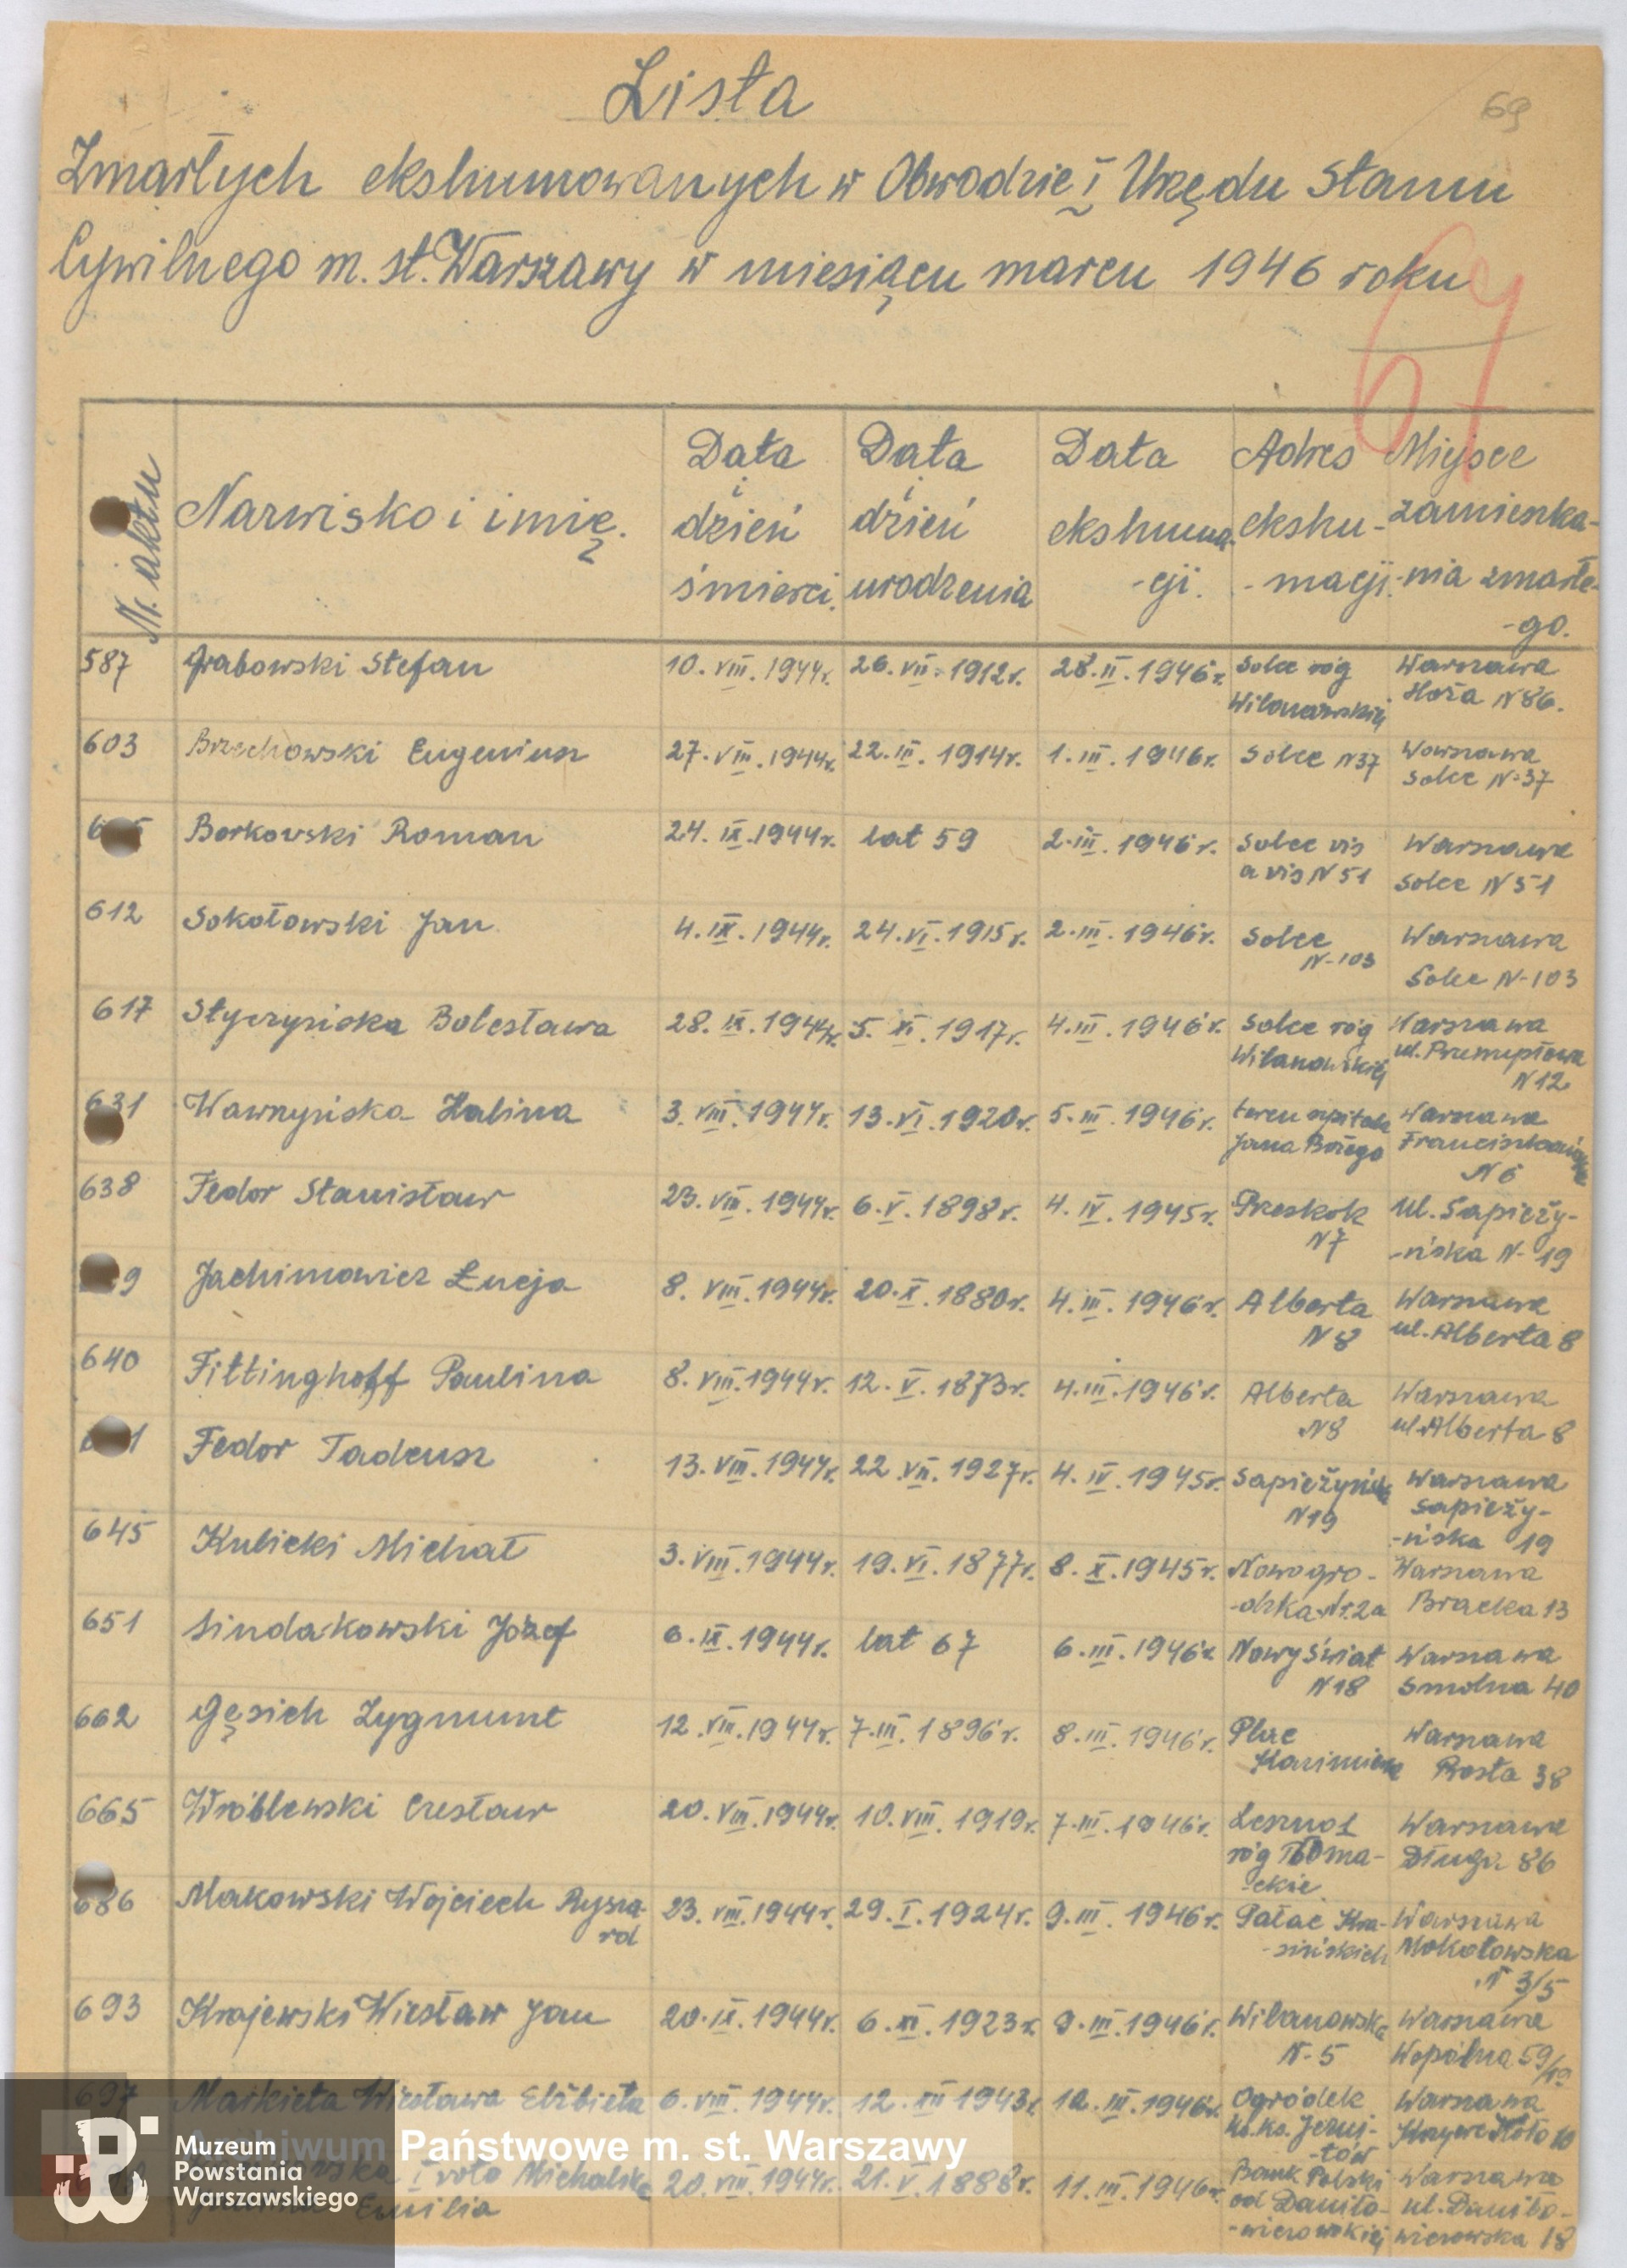 Lista
69
Zmarłych ekshumowanych w Obwodzie I Urzędu Stanu
Cywilnego m. st. Warszawy w miesiącu marcu 1946 roku
69
Nr. aktu
Nazwisko i imię.
Data i dzień śmierci.
Data i dzień urodzenia
Data ekshuma-cji.
Adres ekshu--macji.
Miejsce zamieszka--nia zmarłe--go.
587 Grabowski Stefan 10.VIII.1944r. 26.VII.1912r. 28.II.1946r. Solec róg Wilanowskiej Warszawa Hoża N 86.
603 Brzechowski Eugeniusz 27.VIII.1944r. 22.III.1914r. 1.III.1946r. Solec N37 Warszawa Solec N-37
Borkowski Roman 24.IX.1944r. lat 59 2.III.1946r. Solec vis a vis N 51 Warszawa Solec N 51
612 Sokołowski Jan 4.IX.1944r. 24.VI.1915r. 2.III.1946r. Solec N-103 Warszawa Solec N-103
617 Styczyńska Bolesława 28.IX.1944r. 5.XI.1917r. 4.III.1946r. Solec róg Wilanowskiej Warszawa ul. Przemysłowa N12
631 Wawrzyńska Halina 3.VIII.1944r. 13.VI.1920r. 5.III.1946r. teren szpitala Jana Bożego Warszawa Franciszkańska N 6
638 Fedor Stanisław 23.VIII.1944r. 6.V.1898r. 4.IV.1945r. Przeskok N7 Ul. Sapieży--ńska N- 19
9 Jachimowicz Łucja 8.VIII.1944r. 20.X.1880r. 4.III.1946r. Alberta N 8 Warszawa ul. Alberta 8
640 Fittinghoff Paulina 8.VIII.1944r. 12.V.1873r. 4.III.1946r. Alberta N8 Warszawa ul. Alberta 8
1 Fedor Tadeusz 13.VIII.1944r. 22.VII.1927r. 4.IV.1945r. Sapieżyńska N19 Warszawa Sapieży--ńska 19
645 Kulicki Michał 3.VIII.1944r. 19.VI.1877r. 8.X.1945r. Nowogro--dzka Nr.2a Warszawa Bracka 13
651 Sindakowski Józef 6.IX.1944r. lat 67 6.III.1946r. Nowy Świat N18 Warszawa Smolna 40
662 Gęsich Zygmunt 12.VIII.1944r. 7.III.1896r. 8.III.1946r. Plac Kazimierza Warszawa Prosta 38
665 Wróblewski Czesław 20.VIII.1944r. 10.VIII.1919r. 7.III.1946r. Leszno 1 róg Tłoma--ckie Warszawa Długa 86
686 Makowski Wojciech Rysza-rd 23.VIII.1944r. 29.I.1924r. 9.III.1946r. Pałac Kra--sińskich Warszawa Mokotowska N 3/5
693 Krajewski Wiesław Jan 20.IX.1944r. 6.XI.1923r. 9.III.1946r. Wilanowska N-5 Warszawa Wspólna 59/19
697 Markieta Wiesława Elżbieta 6.VIII.1944r. 12.XII.1943r. 10.III.1946r. Ogródek ks.ks. Jezui--tów Warszawa Krzywe Koło 10
I voto Michalska Emilia 20.VIII.1944r. 21.V.1888r. 11.III.1946r. Bank Polski od Daniło--wiczowskiej Warszawa ul. Daniło--wiczowska 18
Archiwum Państwowe m. st. Warszawy
Muzeum
Powstania
Warszawskiego